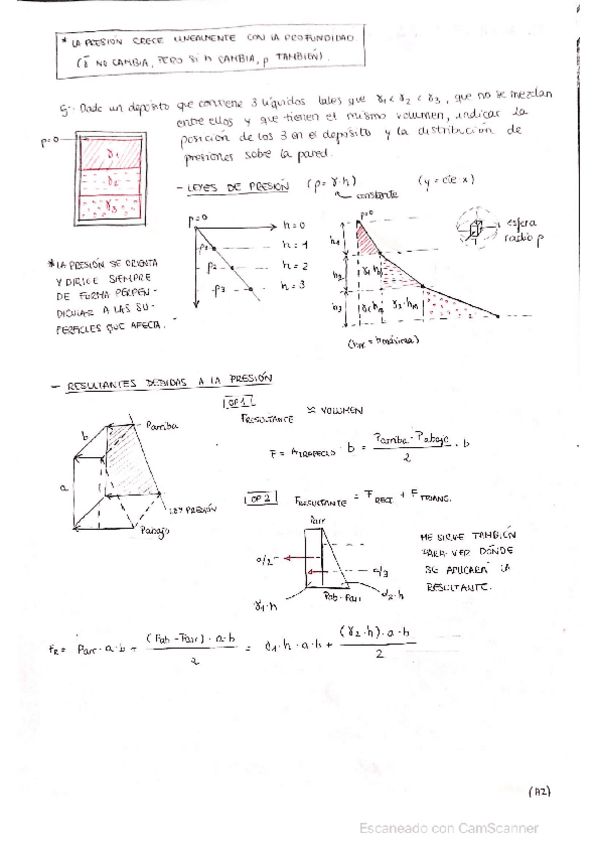 * LA PRESIÓN CRECE LINEALMENTE CON LA PROFUNDIDAD
(γ NO CAMBIA, PERO SI h CAMBIA, p TAMBIÉN).
Ej: Dado un depósito que contiene 3 líquidos tales que γ1 < γ2 < γ3, que no se mezclan
entre ellos y que tienen el mismo volumen, indicar la
posición de los 3 en el depósito y la distribución de
presiones sobre la pared.
p=0
γ1
γ2
γ3
- LEYES DE PRESIÓN (p=γ·h) (y = cte·x)
constante
p=0
h=0
p1 h=1
p2 h=2
p3 h=3
p=0
h1
h2
h3
γ1·hM
γ1·hM
γ2·hM
(hM = h máxima)
esfera
radio p
* LA PRESIÓN SE ORIENTA
Y DIRIGE SIEMPRE
DE FORMA PERPEN-
DICULAR A LAS SU-
PERFICIES QUE AFECTA.
- RESULTANTES DEBIDAS A LA PRESIÓN
OP1 FRESULTANTE ≈ VOLUMEN
b
a
Parriba
LEY PRESIÓN
Pabajo
F = ATRAPECIO · b = Parriba · Pabajo / 2 · b
OP2 FRESULTANTE = FRECT + FTRIANG.
Parr
a/2
a/3
γ1·h
Pab-Parr
γ2·h
ME SIRVE TAMBIÉN
PARA VER DÓNDE
SE APLICARÁ LA
RESULTANTE.
FR = Parr·a·b + (Pab-Parr)·a·b / 2 = γ1·h·a·b + (γ2·h)·a·b / 2
(A2)
Escaneado con CamScanner